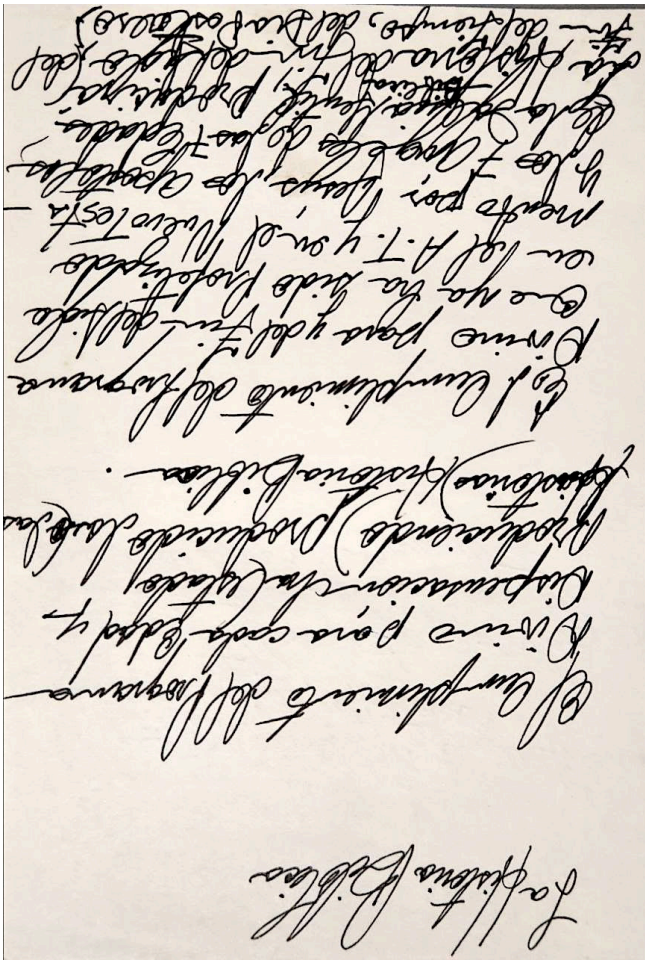 La Historia Biblica
El Cumplimiento del Programa
Divino para cada Edad y
Dispensacion ha (estado,
Produciendo) producido la (las
Historias) Historia Biblica.
Es el Cumplimiento del Programa
Divino para y del Fin del siglo
que ya ha sido Profetizado
en el A.T. y en el Nuevo Testa-
mento por Jesus, los apostoles
y los 7 angeles de las 7 edades
de la Iglesia gentil, producira
Biblica
la Historia del fin del siglo, (del
fin del tiempo, del Dia Postrero)